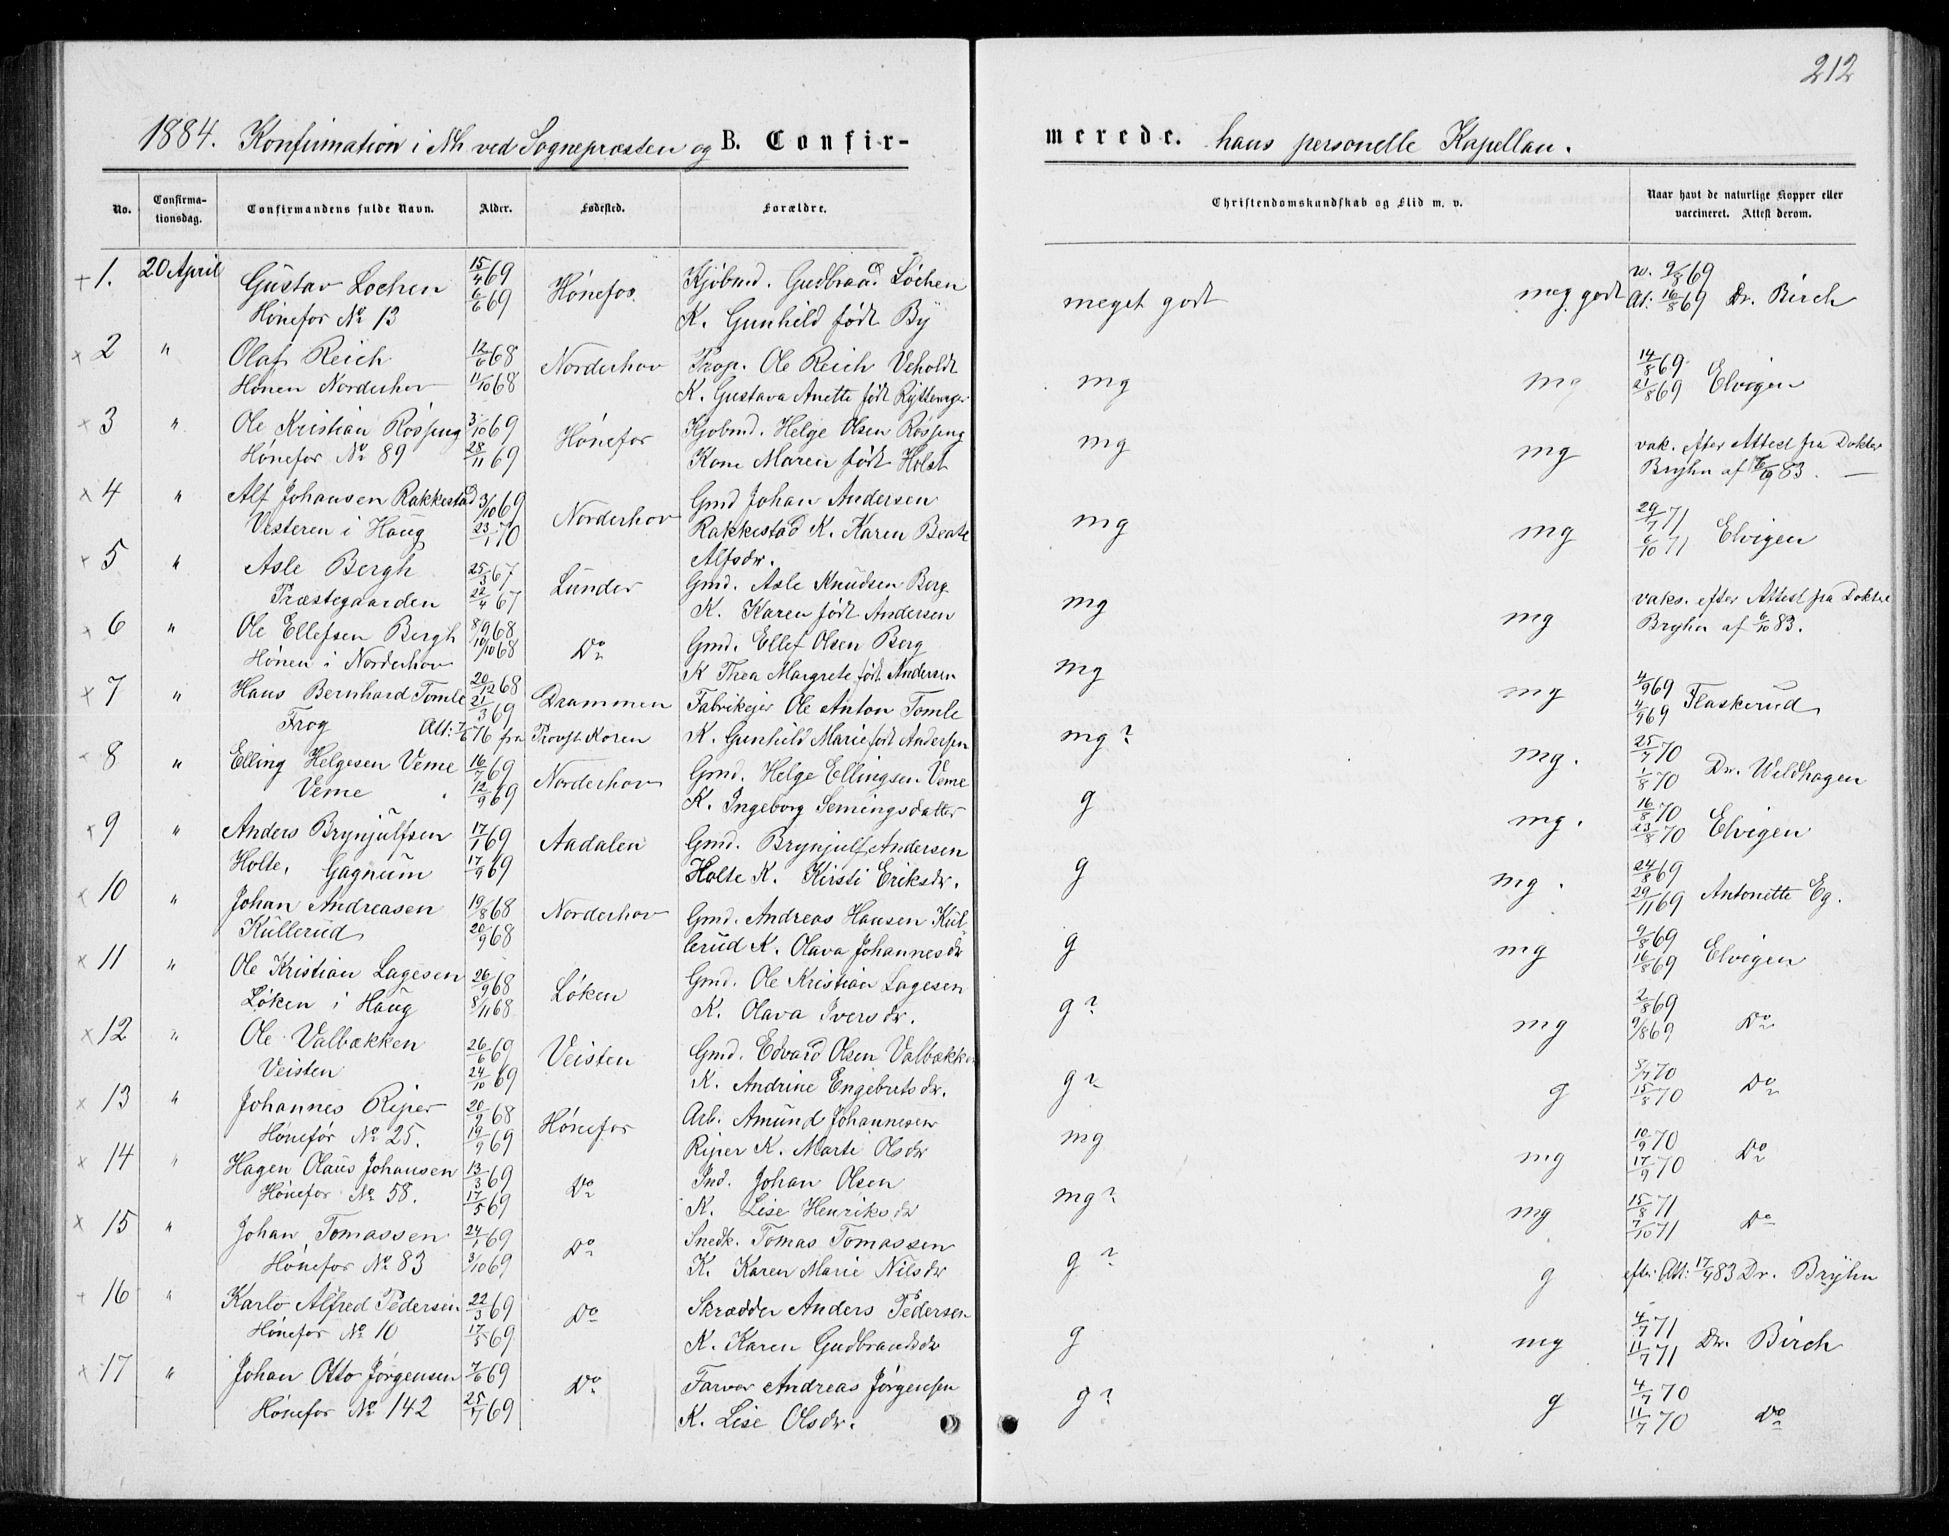 212
1884. Konfirmation i Nh ved Sognepræsten og B. Confir-
merede. hans personelle Kapellan.
No. Confirma-tionsdag. Confirmandens fulde Navn. Alder. Fødested. Forældre. Christendomskundskab og Flid m. v. Naar havt de naturlige Kopper eller vaccineret. Attest derom.
+ 1. 20 April Gustav Lochen 15/4 69 Hönefos. Kjöbmd. Gudbrand Löchen meget godt meg. godt v. 9/8 69
Hönefos No 13 6/6 69 K. Gunhild födt By At: 16/8 69 Dr. Birch
x 2 " Olaf Reich 12/6 68 Norderhov Prop. Ole Reich Veholdt mg mg 14/8 69
Hönen Norderhov 11/10 68 K. Gustava Anette födt 21/8 69 Elvigen
x 3 " Ole Kristian Røssing 3/10 69 Hönefos Kjöbmd. Helge Olsen Røssing mg mg vak. efter Attest fra Doktor
Hönefos No 89 28/11 69 Kone Maren födt Holst Bryhn af 83. —
x 4 " Alf Johansen Rakkestad 3/10 69 Norderhov Gmd Johan Andersen mg mg 29/7 71
Vesteren i Haug 23/1 70 Rakkestad K. Karen Beate 6/10 71 Elvigen
Alfsdr.
x 5 " Asle Bergh 25/3 67 Lunder Gmd. Asle Knudsen Berg mg mg vaks. efter Attest fra Doktor
Præstegaarden 22/4 67 K. Karen födt Andersen Bryhn af 6/10 83.
x 6 " Ole Ellefsen Bergh 8/9 68 Do Gmd. Ellef Olsen Berg mg mg 4/9 69
Hönen i Norderhov 10/10 68 K Thea Margrete födt Andersen 4/9 69 Flaskerud
x 7 " Hans Bernhard Tomle 20/12 68 Drammen Fabrikejer Ole Anton Tomle mg? mg. 25/7 70
Frog 21/3 69 Att: 7/6 76 fra Provst Koren K. Gunhild Marie født Andersen 1/8 70 Dr. Weldhagen
x 8 " Elling Helgesen Veme 16/7 69 Norderhov Gmd. Helge Ellingsen Veme g mg. 16/8 70
Veme 12/9 69 K. Ingeborg Semingsdatter 23/8 70 Elvigen
x 9 " Anders Brynjulfsen 17/1 69 Aadalen Gmd. Brynjulf Andersen g mg. 24/8 69
Holte, Gagnum 17/9 69 Holte K. Kirsti Eriksdr. 29/11 69 Antonette Eg.
10 " Johan Andreasen 19/8 68 Norderhov Gmd. Andreas Hansen Kul- g mg 9/8 69
Kullerud 20/9 68 lerud K. Olava Johannesdr 16/8 69 Elvigen
x 11 " Ole Kristian Lagesen 26/9 68 Løken Gmd. Ole Kristian Lagesen g? mg 2/8 69
Løken i Haug 8/11 68 K. Olava Iversdr. 9/8 69 Do
x 12 " Ole Valbækken 26/6 69 Veisten Gmd. Edvard Olsen Valbækken g? g 8/7 70
Veisten 24/10 69 K. Andrine Engebretsdr. 15/8 70 Do
x 13 " Johannes Riper 20/9 68 Hönefos Arb. Amund Johannesen mg mg 10/9 70
Hönefos No 25. 19/9 69 Riper K. Marte Olsdr 17/9 70 Do
x 14 " Hagen Olaus Johansen 13/3 69 Do Ind. Johan Olsen mg? mg 15/8 71
Hönefos No 58. 17/5 69 K. Lise Henriksdr 7/10 71 Do
x 15 " Johan Tomassen 24/1 69 Do Snedk. Tomas Tomassen g? g efter Att: 17/9 83 Dr. Bryhn
Hönefos No 83 3/10 69 K. Karen Marie Nilsdr
+ 16 " Karlo Alfred Pedersen 22/3 69 Do Skrædder Anders Pedersen g mg 4/7 71
Hönefos No 10 17/5 69 K. Karen Gudbrandsdr 11/7 71 Dr. Birch
x 17 " Johan Otto Jørgensen 7/6 69 Do Farver Andreas Jørgensen g? g 4/7 70
Hönefos No 142 25/7 69 K. Lise Olsdr. 11/7 70 Do